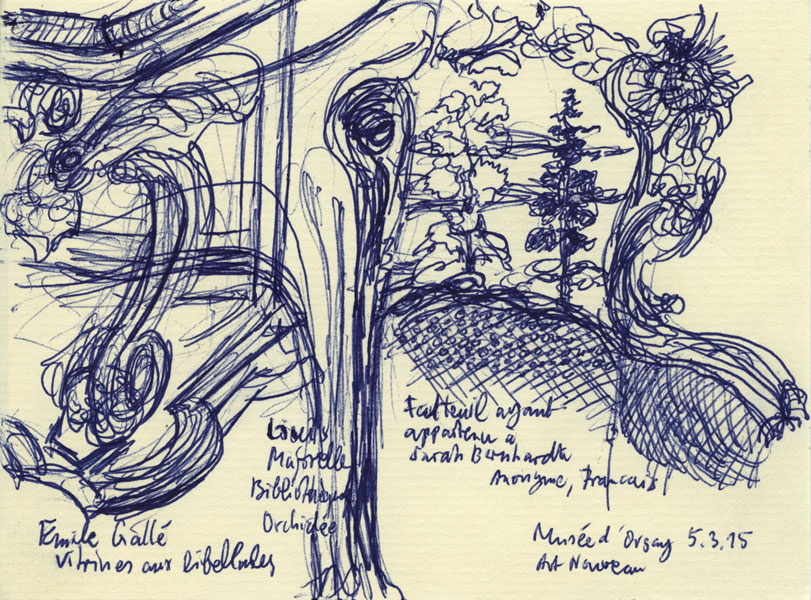 Emile Gallé
Vitrines aux libellules
Louis
Majorelle
Bibliothèque
Orchidée
Fauteuil ayant
appartenu a
Sarah Bernhardt
Anonyme, Francais
Musée d'Orsay 5.3.15
Art Nouveau